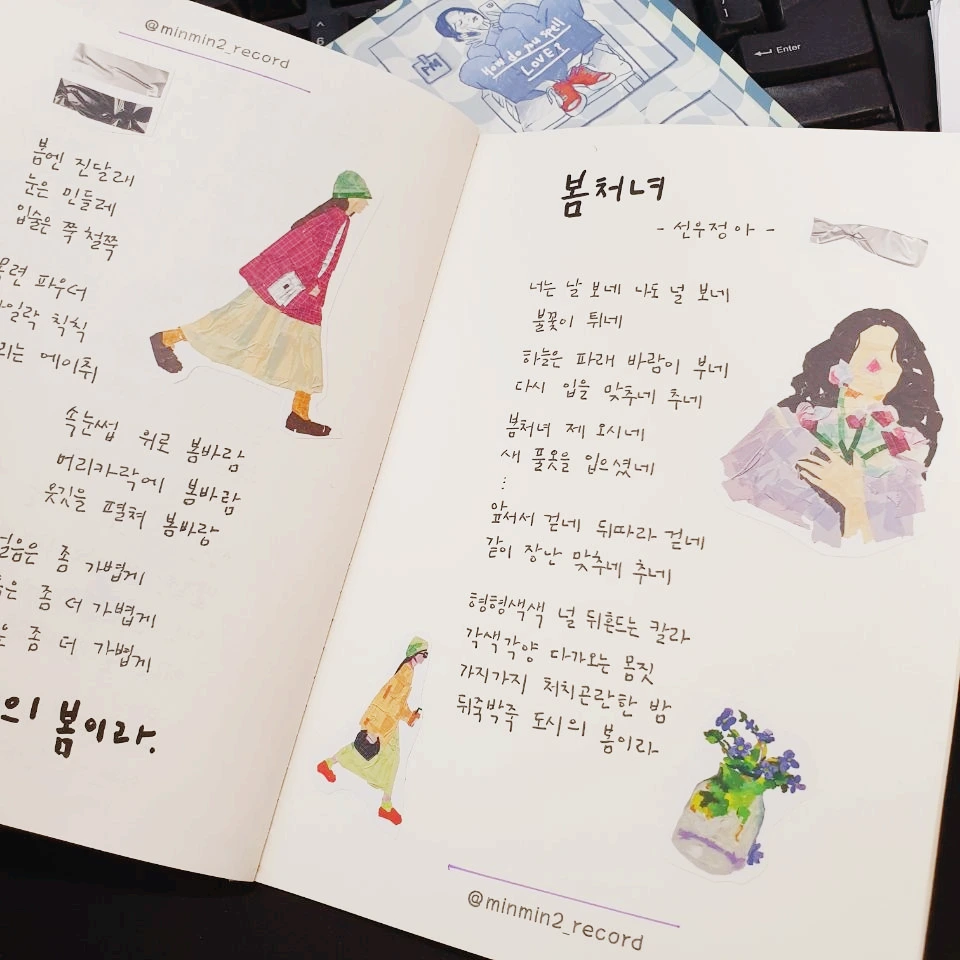 @minmin2_record
봄엔 진달래
눈은 민들레
입술은 쭉 철쭉
목련 파우더
라일락 칙칙
리는 에이취
속눈썹 위로 봄바람
머리카락에 봄바람
옷깃을 펼쳐 봄바람
좀 가볍게
좀 더 가볍게
좀 더 가볍게
의 봄이라.
How do you spell
LOVE?
Enter
봄처녀
- 선우정아 -
너는 날 보네 나도 널 보네
불꽃이 튀네
하늘은 파래 바람이 부네
다시 입을 맞추네 추네
봄처녀 제 오시네
새 풀옷을 입으셨네
⋮
앞서서 걷네 뒤따라 걷네
같이 장난 맞추네 추네
형형색색 널 뒤흔드는 칼라
각색각양 다가오는 몸짓
가지가지 처치곤란한 밤
뒤죽박죽 도시의 봄이라
@minmin2_record